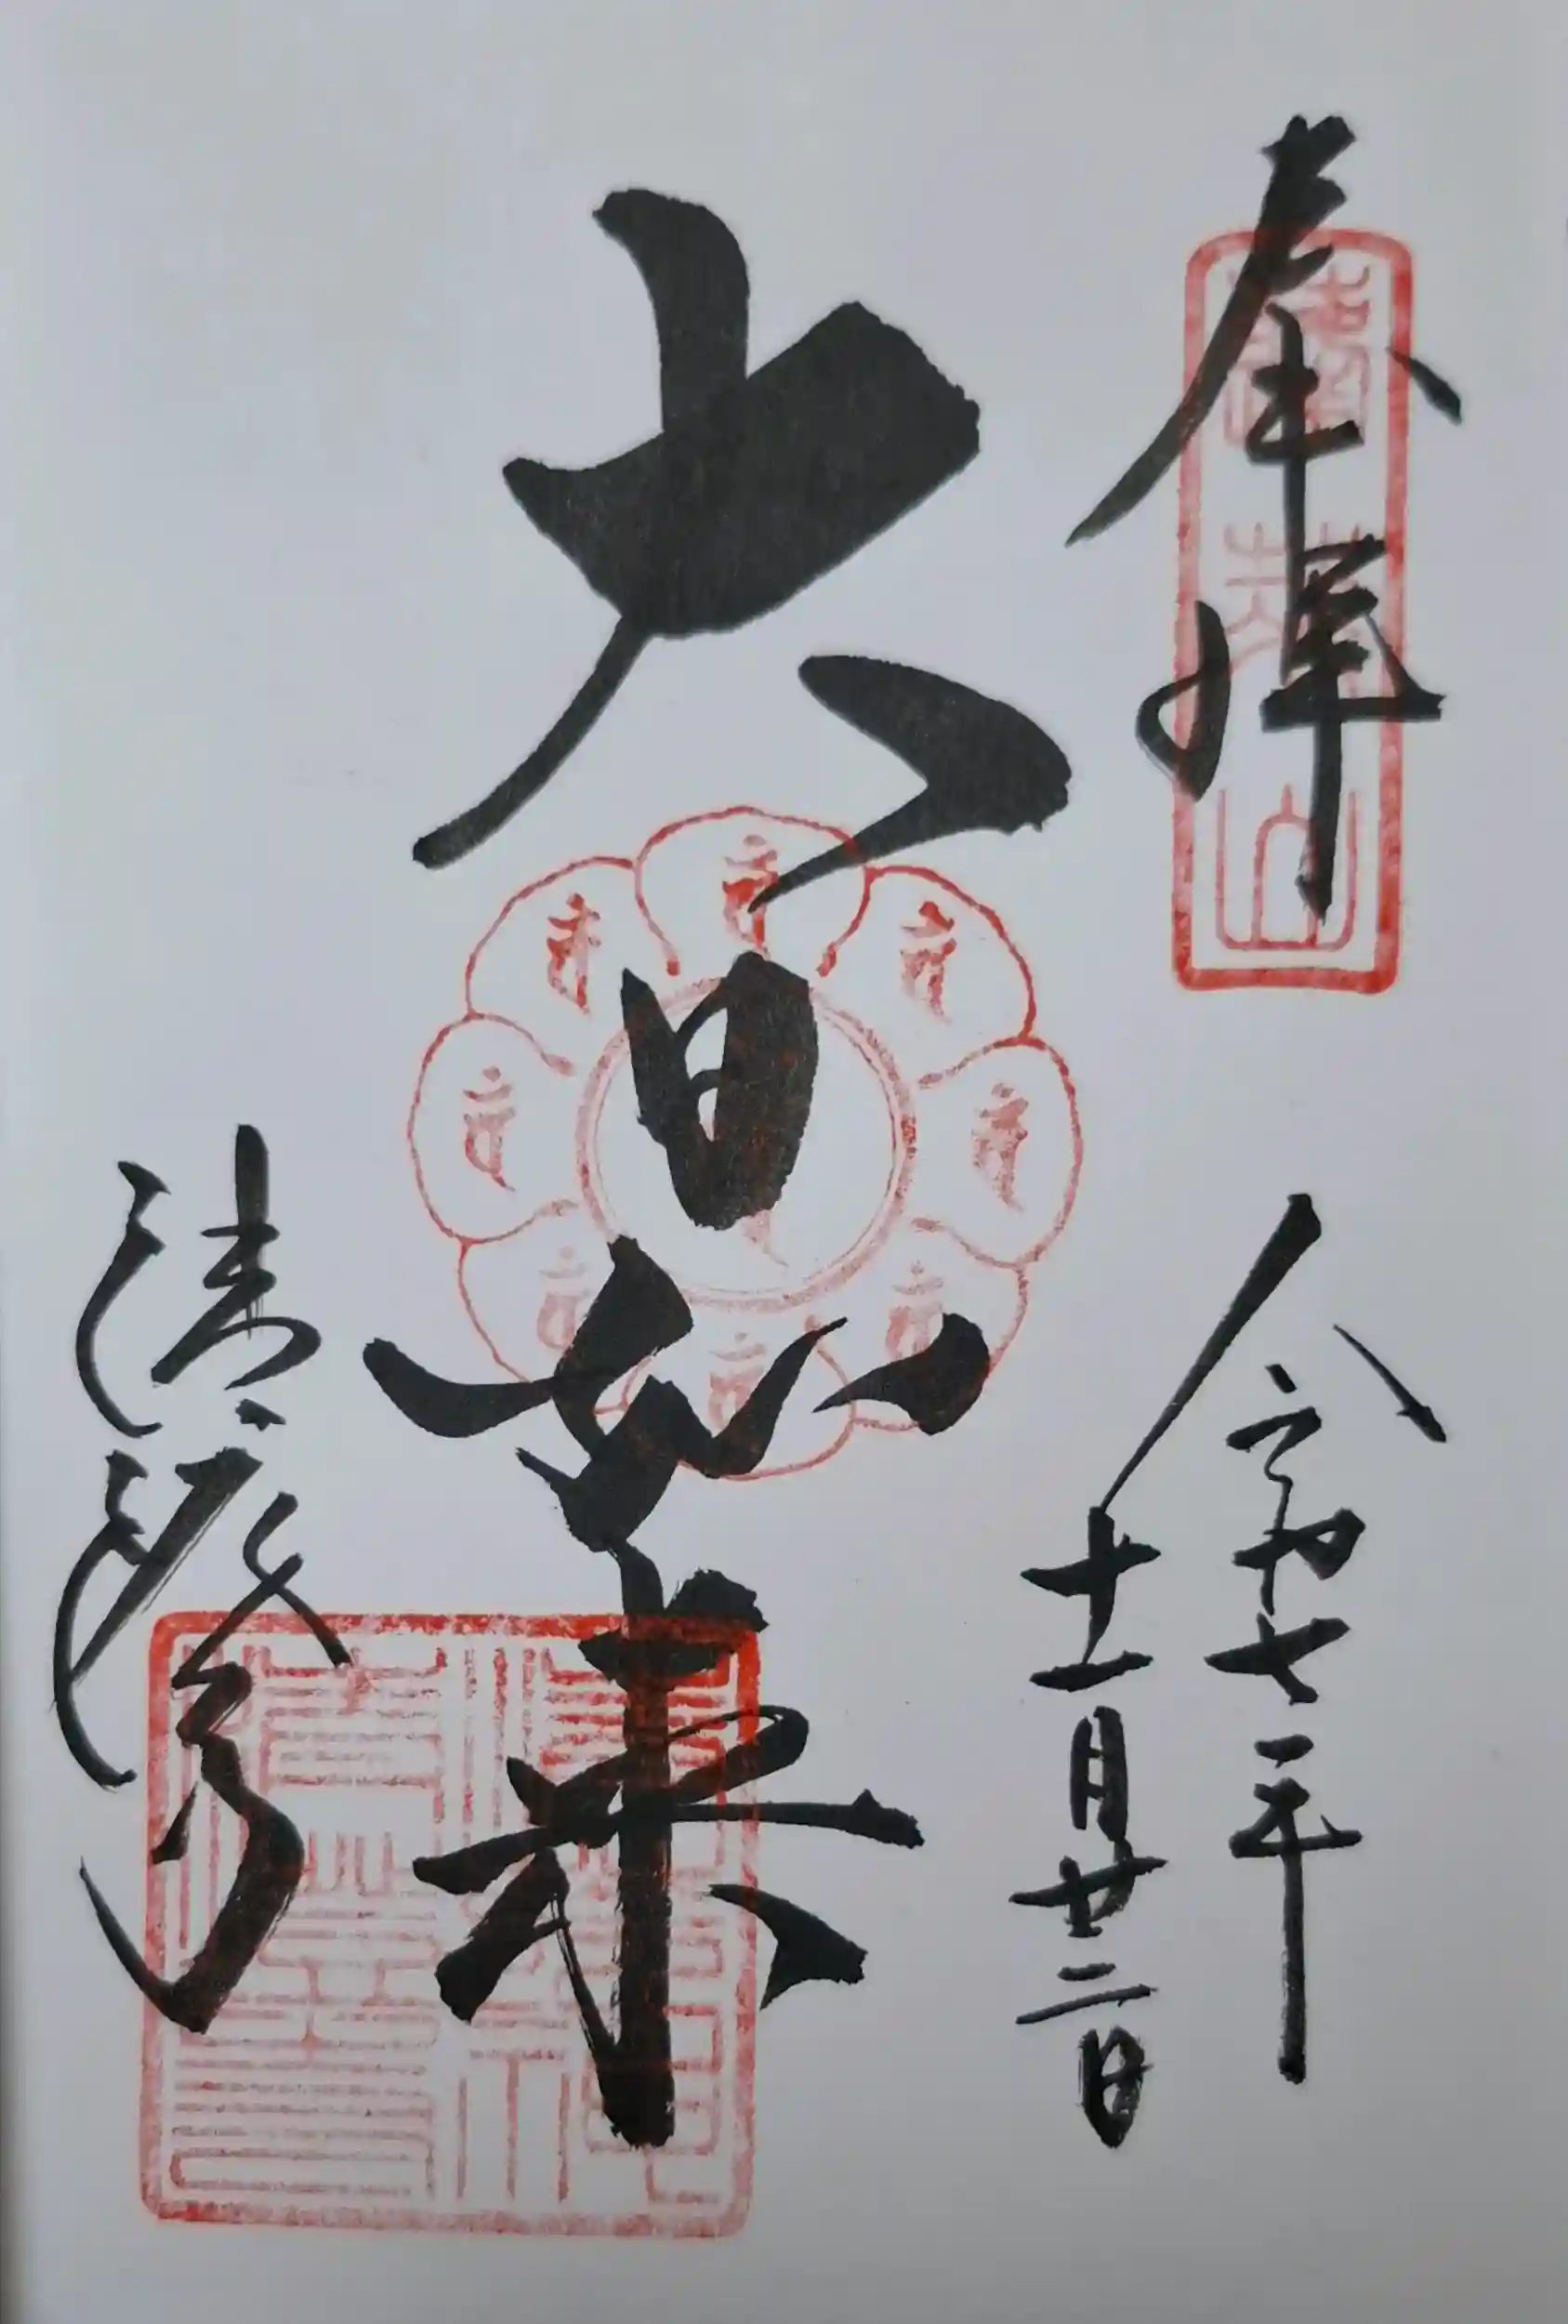 奉拝
令和七年
十一月廿二日
大日如来
清澄寺